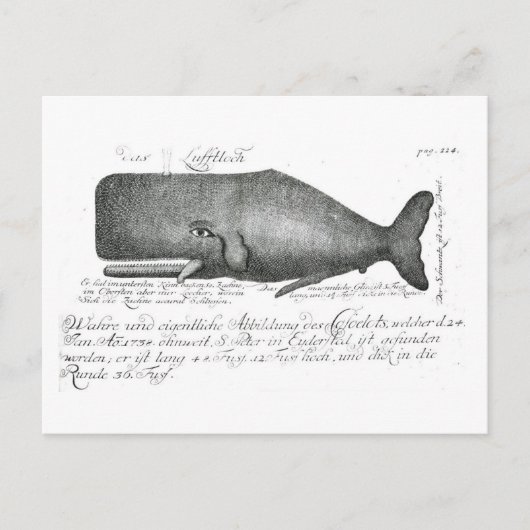 Das Lufftloch
pag. 224.
Er hat im untersten Kinnbacken 52. Zaehne,
im Obersten aber nur Loecher, worein
Sich die Zaehne accurat Schliessen.
Das maennliche Glied ist 3. Fuss
lang, und 1½ Fuss dicke in die Runde.
Der Schwantz ist 12. Fuss Breit.
Wahre und eigentliche Abbildung des Cascelots, welcher d. 24.
Jan. Ao. 1738. ohnweit, S. Peter in Eydersted, ist gefunden
worden; er ist lang 48. Fuss. 12. Fuss hoch. und dick in die
Runde 36. Fuss.